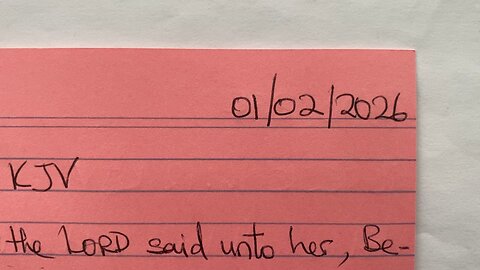 01/02/2026
KJV
the LORD said unto her, Be-